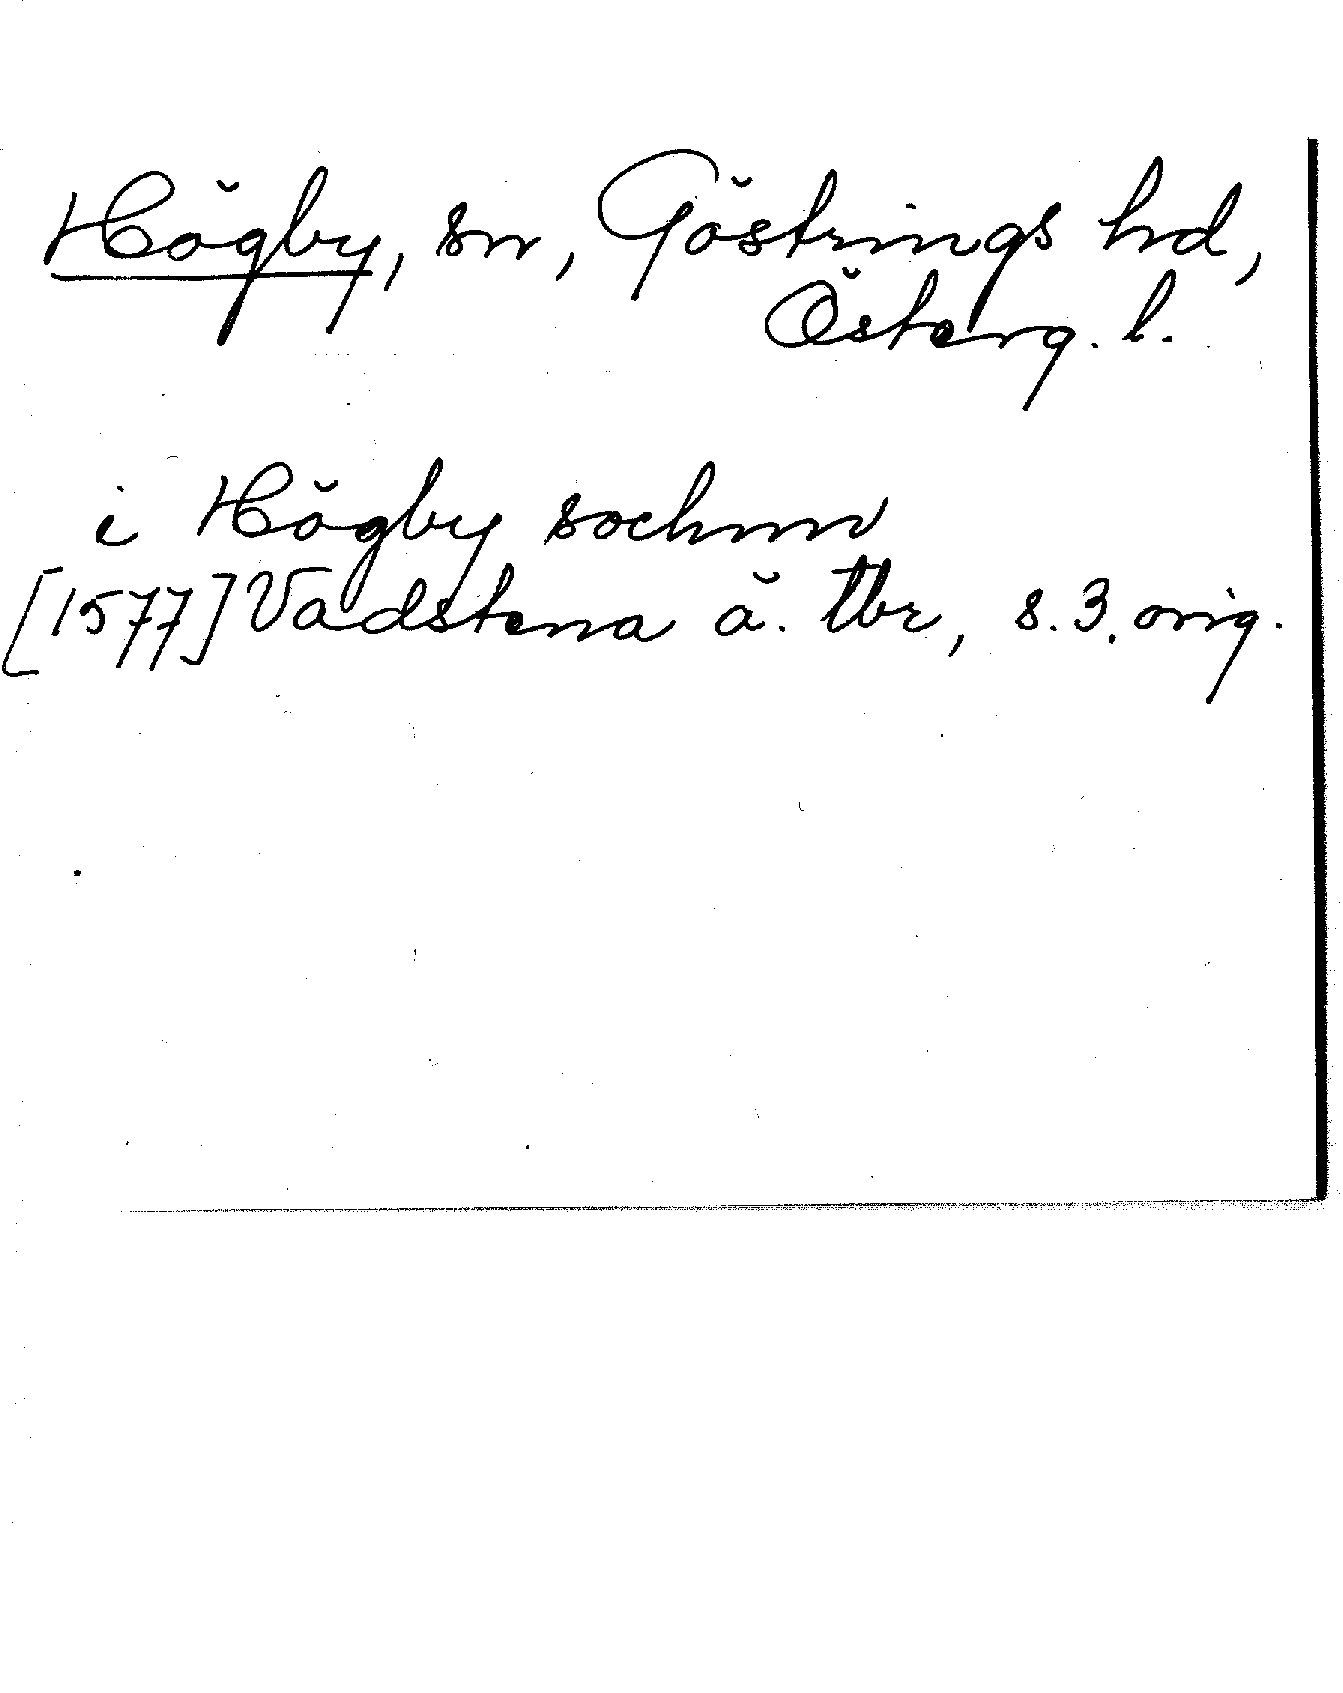 Högby, sn, Göstrings hd,
Österg. l.
i Högby sochnn
[1577] Vadstena ä. tbr, s. 3. orig.